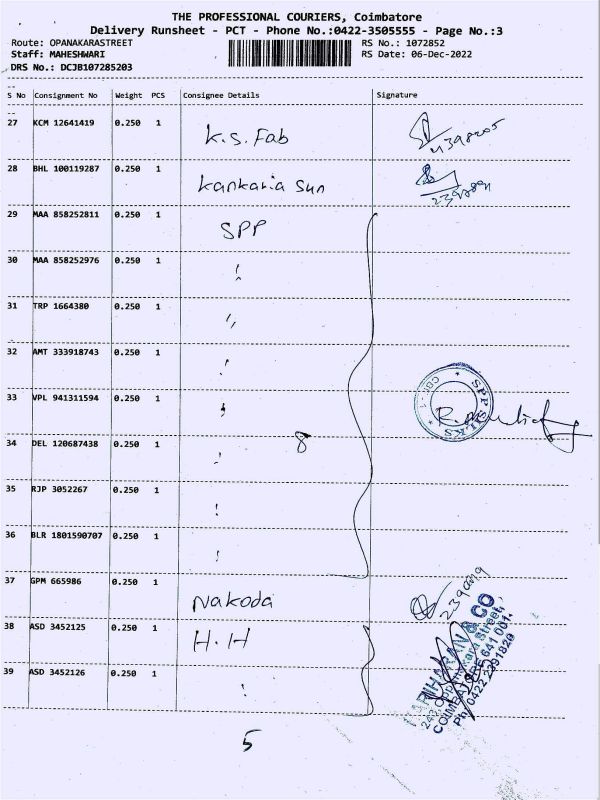 THE PROFESSIONAL COURIERS, Coimbatore
Delivery Runsheet - PCT - Phone No.:0422-3505555 - Page No.:3
Route: OPANAKARASTREET RS No.: 1072852
Staff: MAHESHWARI RS Date: 06-Dec-2022
DRS No.: DCJB107285203
S No Consignment No Weight PCS Consignee Details Signature
27 KCM 12641419 0.250 1 K.S. Fab
28 BHL 100119287 0.250 1 Kankaria Sun
29 MAA 858252811 0.250 1 SPP
30 MAA 858252976 0.250 1
31 TRP 1664380 0.250 1
32 AMT 333918743 0.250 1
33 VPL 941311594 0.250 1
SPP SILKS
34 DEL 120687438 0.250 1 8
35 RJP 3052267 0.250 1
36 BLR 1801590707 0.250 1
37 GPM 665986 0.250 1 Nakoda
38 ASD 3452125 0.250 1 H.H
39 ASD 3452126 0.250 1
& CO
Street,
COIMBATORE 641 001
5